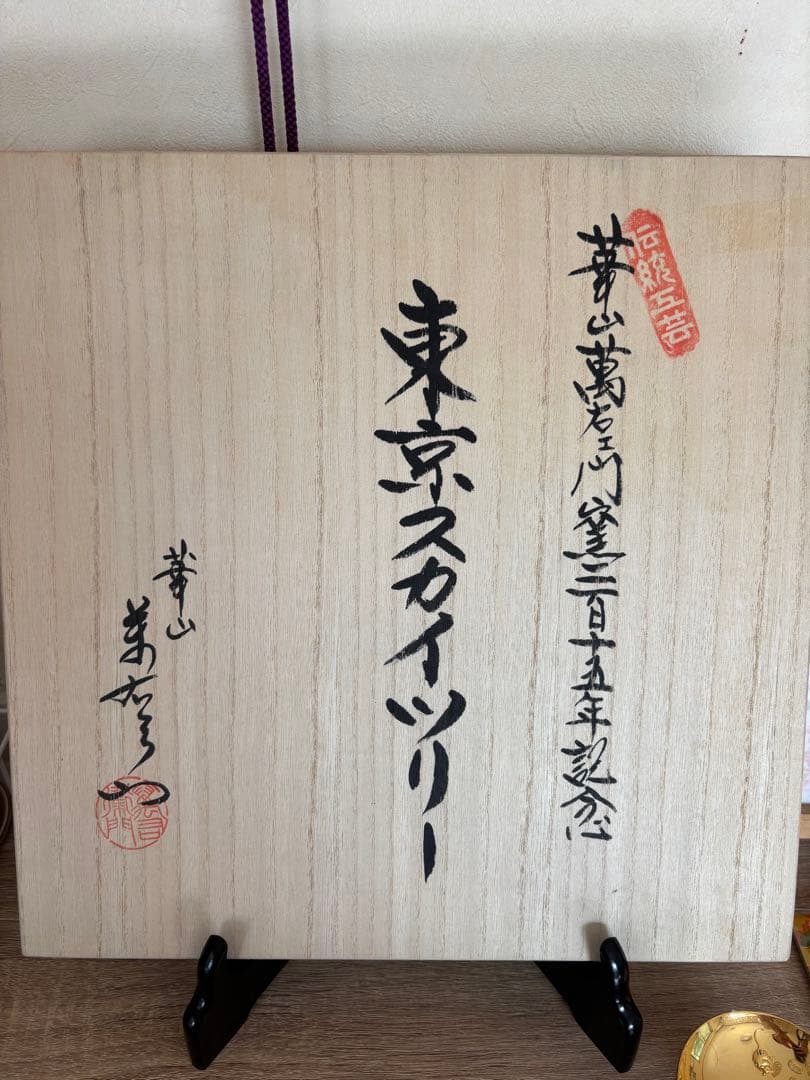 伝統工芸
華山萬右エ門窯二百十五年記念
東京スカイツリー
華山
萬右エ門